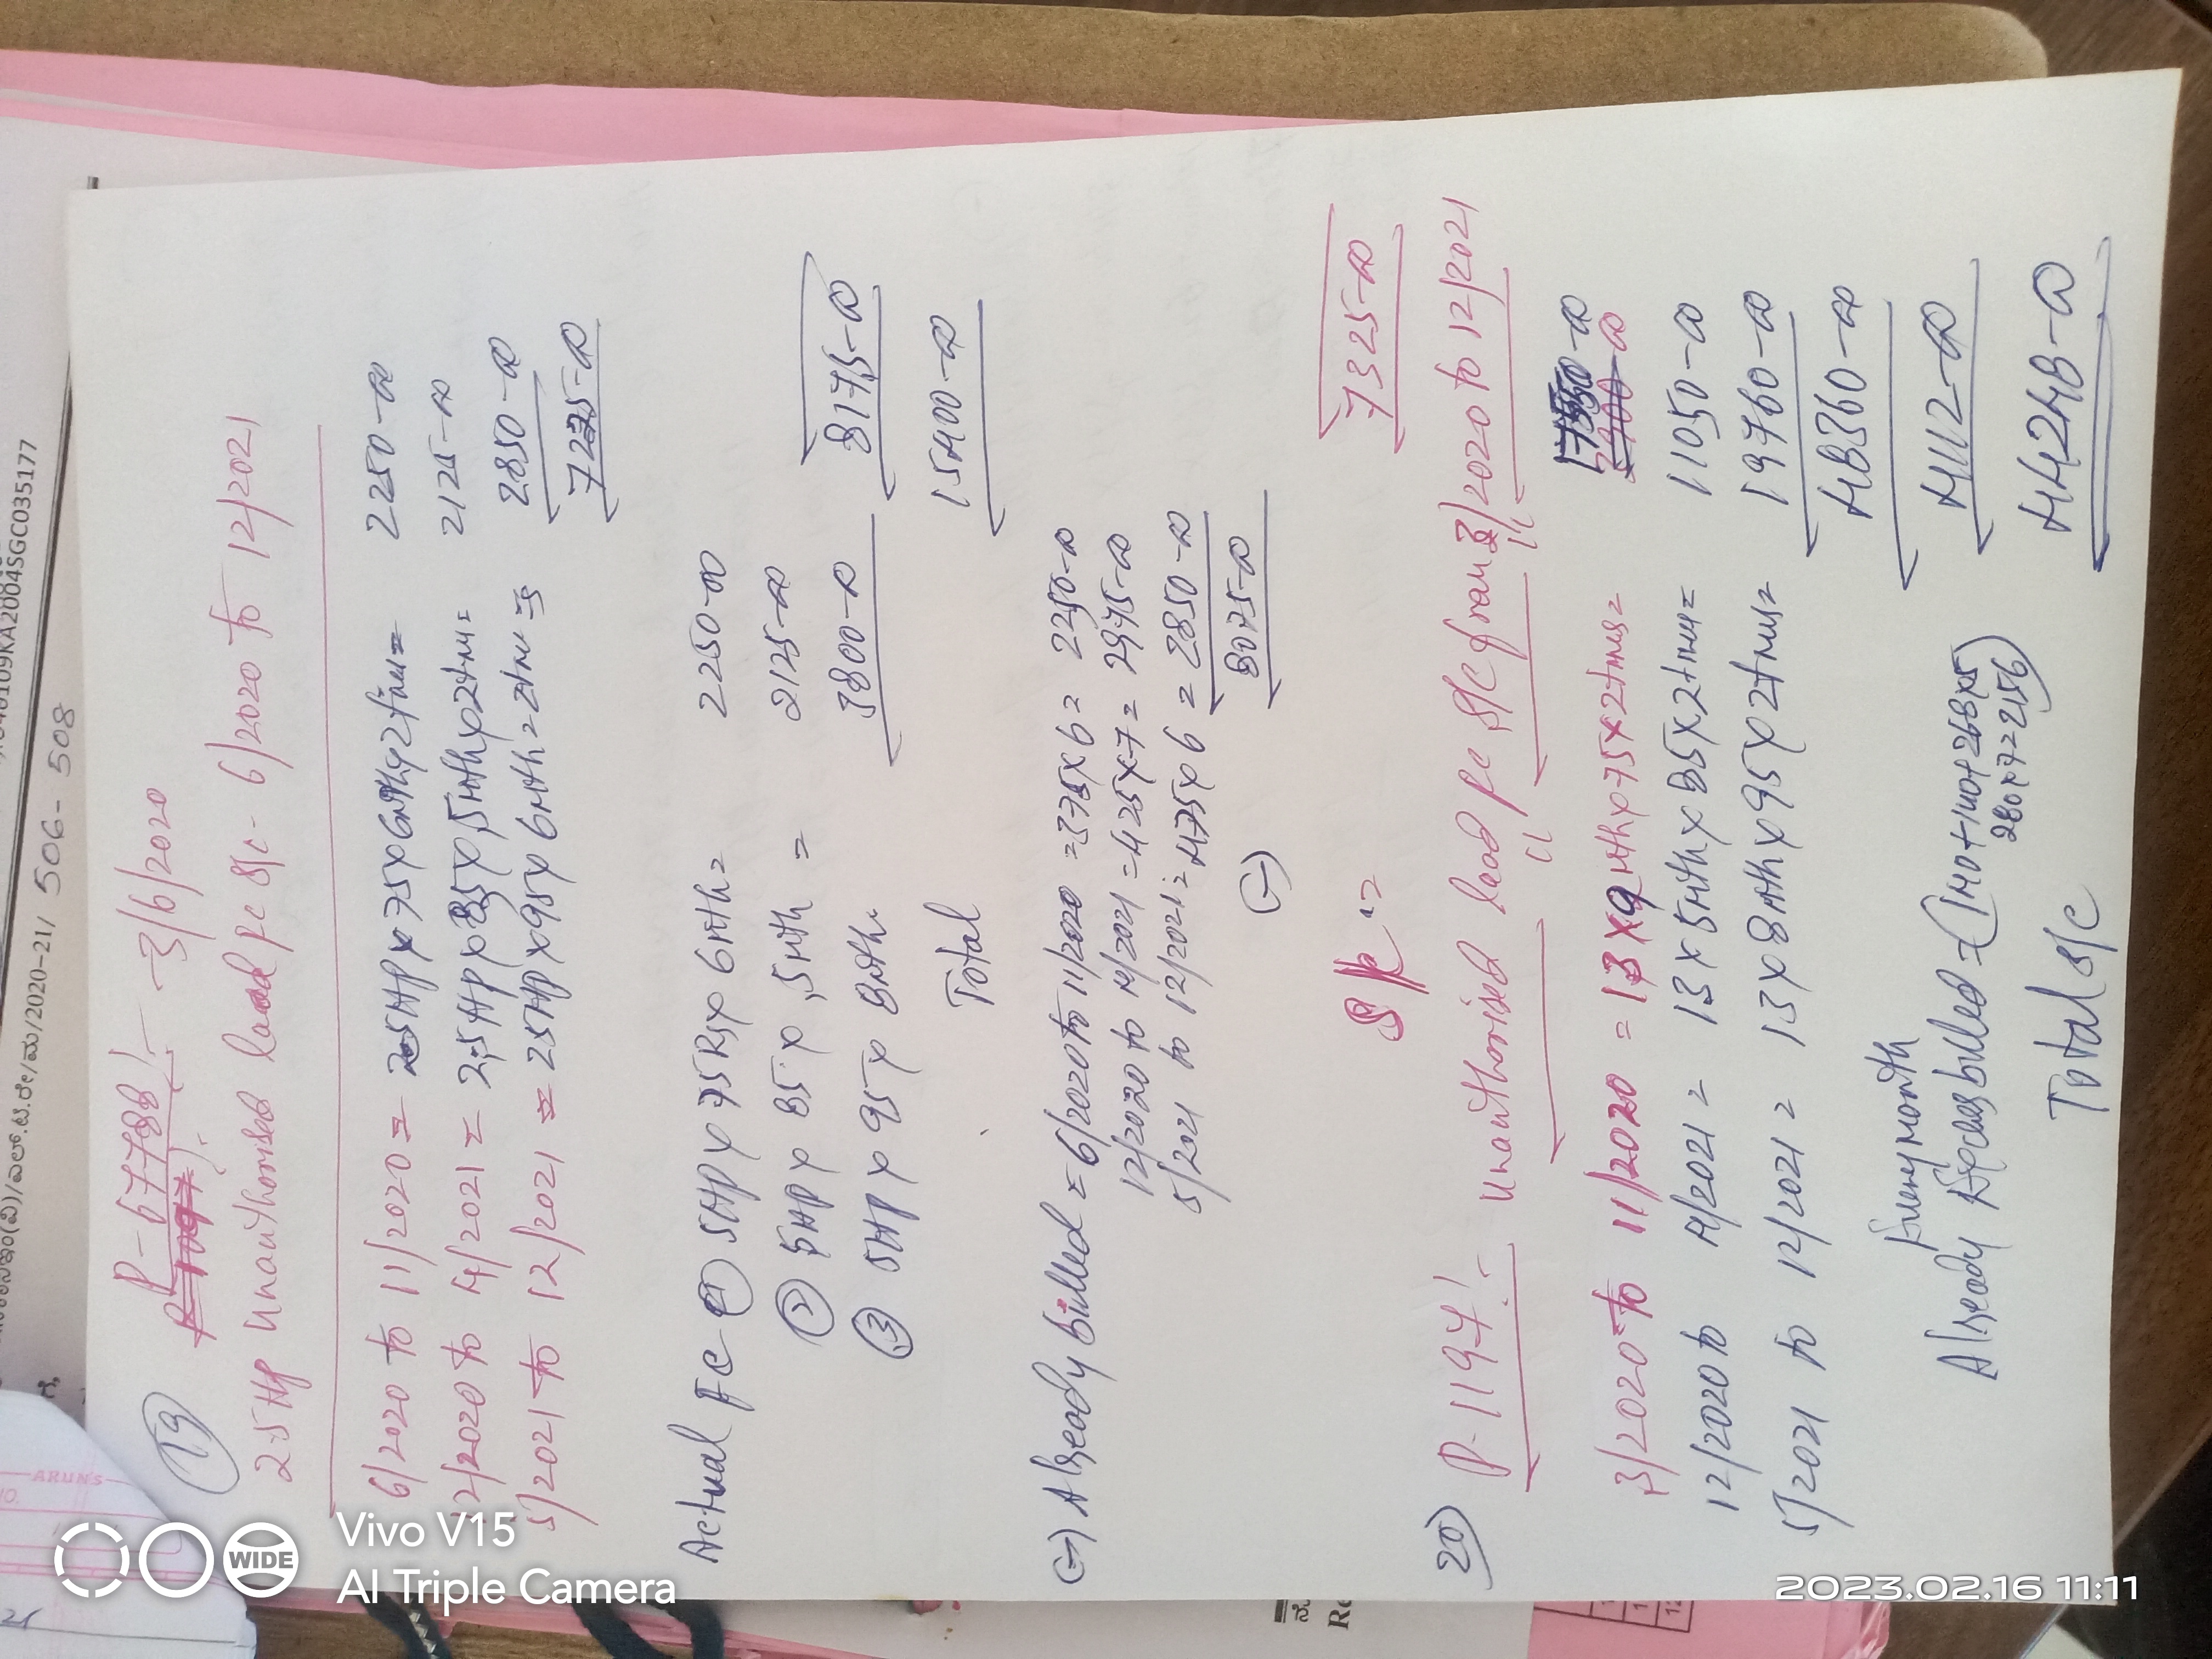 506-508
(19) P-67788!- 3/6/2020
2.5HP unauthorised load fc s/c- 6/2020 to 12/2021
6/2020 to 11/2020 = 2.5HP x 75 x 6mth x 2time = 2250-00
12/2020 to 4/2021 = 2.5HP x 85 x 5mth x 2time = 2125-00
5/2021 to 12/2021 = 25HP x 95 x 6mth = 2time = 2850-00
7225-00
Actual FC ① 5HP x 75Rs x 6mth = 2250-00
② 5HP x 85 x 5mth = 2125-00
③ 5HP x 95 x 8mth 3800-00
8175-00
Total 15400-00
(-) Already billed = 6/2020 to 11/2020 = 375x6 = 2250-00
12/2020 to 4/2021 = 425x7 = 2975-00
5/2021 to 12/2021 = 475x6 = 2850-00
(-) 8075-00
7325-00
(20) P-1197!- unauthorised load fc s/c from 3/2020 to 12/2021
3/2020 to 11/2020 = 13x9mth x 75 x 2times = 17550-00
12/2020 to 4/2021 = 13x5mth x 85 x 2time = 11050-00
5/2021 to 12/2021 = 13x8mth x 95 x 2times = 19760-00
48360-00
Every month
Already billed = (140+140+268x5 4112-00
280x7=2156)
Total s/c 44248-00
Vivo V15
AI Triple Camera
WIDE
2023.02.16 11:11
ARUN'S